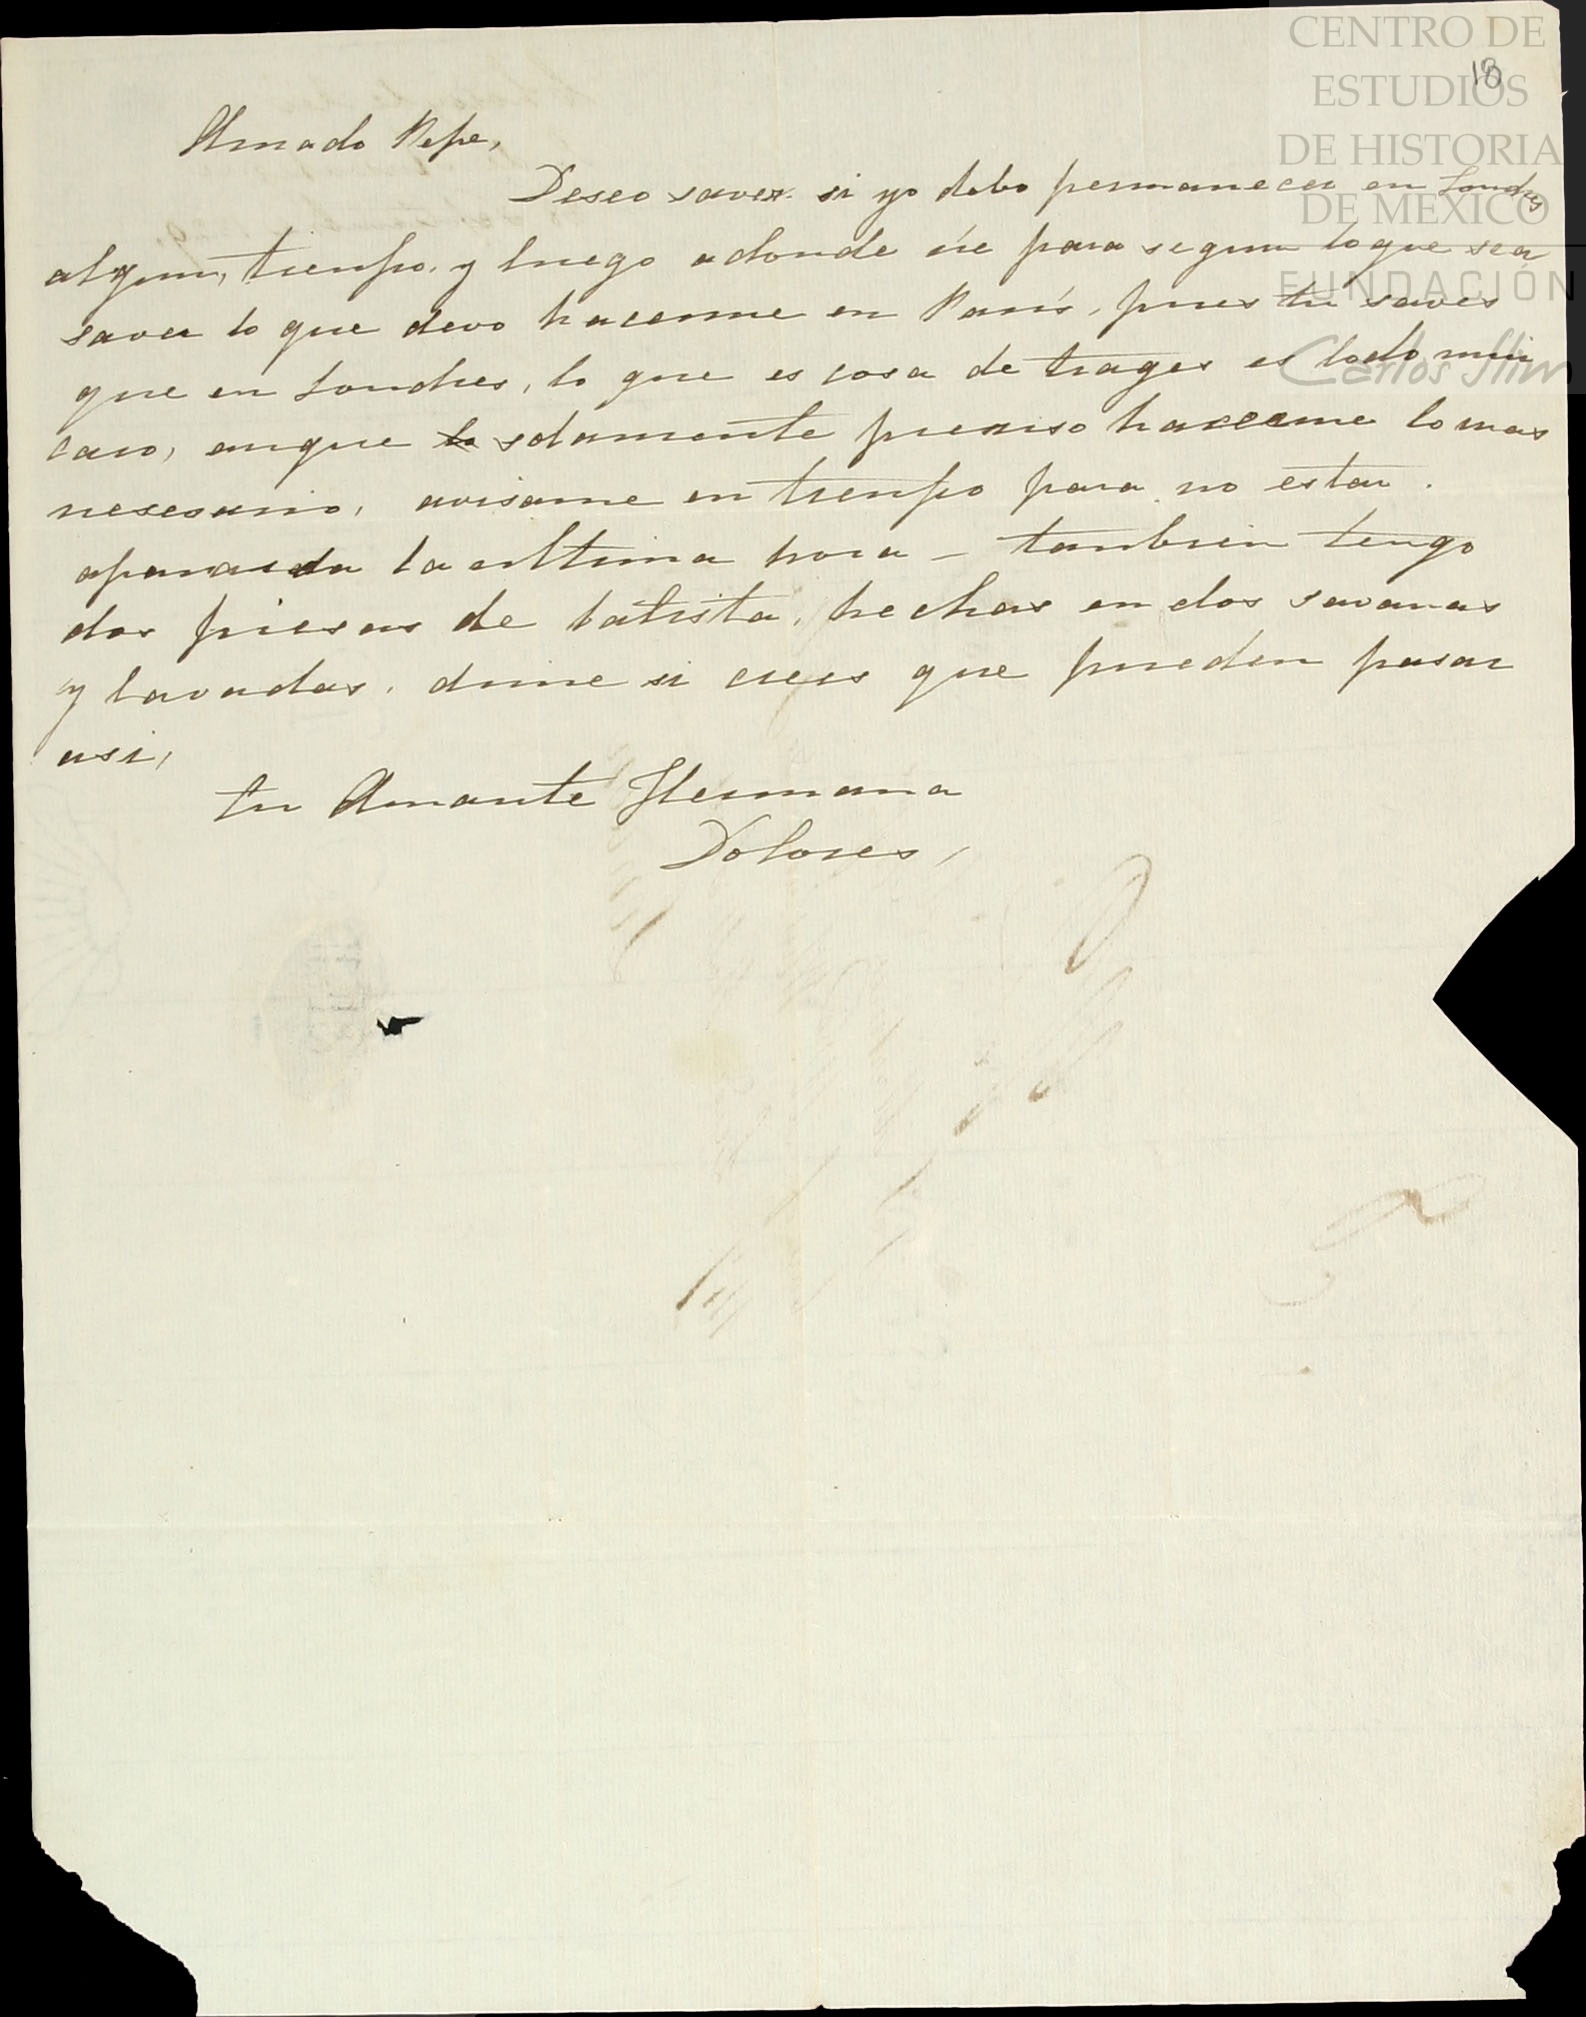 CENTRO DE
ESTUDIOS
DE HISTORIA
DE MÉXICO
FUNDACIÓN
Carlos Slim
18
Amado Pepe,
Deseo saver si yo debo permanecer en Londres
algun, tienpo, y luego adonde iré para segun lo que sea
saver lo que devo hacerme en Paris, pues tu saves
que en Londres, lo que es cosa de trages es todo mui
caro, anque solamente presiso hacerme lo mas
nesesario, avisame en tienpo para no estar
apurada la ultima hora – tanbien tengo
dos piesas de batista, hechas en dos savanas
y lavadas, dime si crees que pueden pasar
asi,
tu Amante Hermana
Dolores,